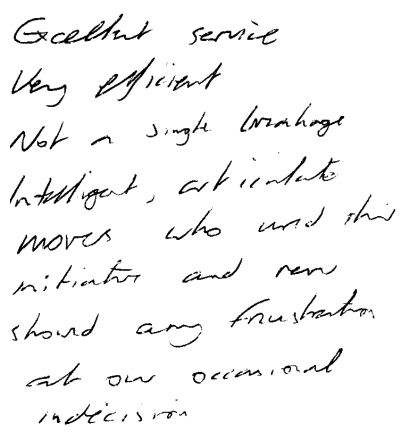 Excellent service
Very efficient
Not a single breakage
Intelligent, articulate
movers who used their
initiative and never
showed any frustration
at our occasional
indecision